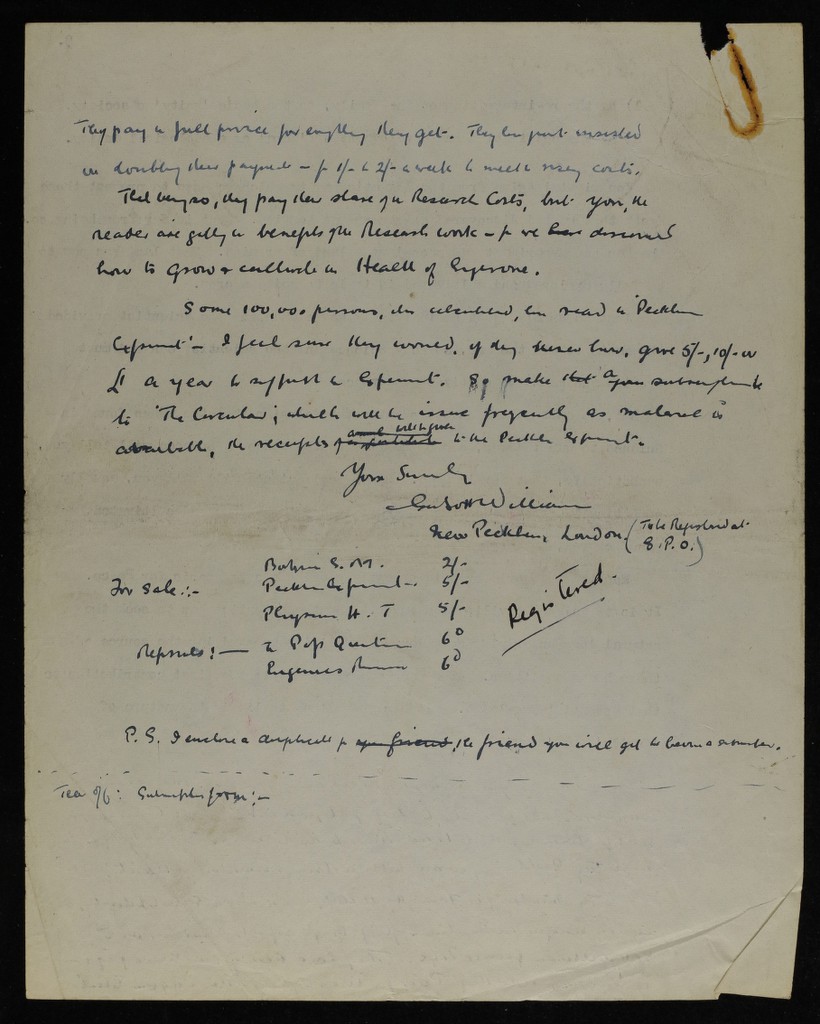 They pay a full price for anything they get. They have just insisted
on doubling their payment – from 1/- to 2/- a week to meet rising costs.
That being so, they pay their share of the Research Costs, but you, the
reader are getting the benefits of the Research work – for we have discovered
how to grow & cultivate the Health of Everyone.
Some 100,000 persons, it is calculated, have read the 'Peckham
Experiment' – I feel sure they would, if they knew how, give 5/-, 10/- or
£1 a year to support the Experiment. So make that a your subscription to
to 'The Circular', which will be issued frequently as material is
available, the receipts to the Peckham Experiment.
Yours Sincerely
G Scott Williamson
New Peckham, London. (To be Registered at
G.P.O.)
For Sale:-
S.M. 2/-
Peckham Experiment 5/-
H.T 5/-
Registered.
Reprints: – a Question 6d
Eugenics 6d
P.S. I enclose a duplicate for your friend, the friend you will get to become a subscriber.
Tear off: Subscription form:-